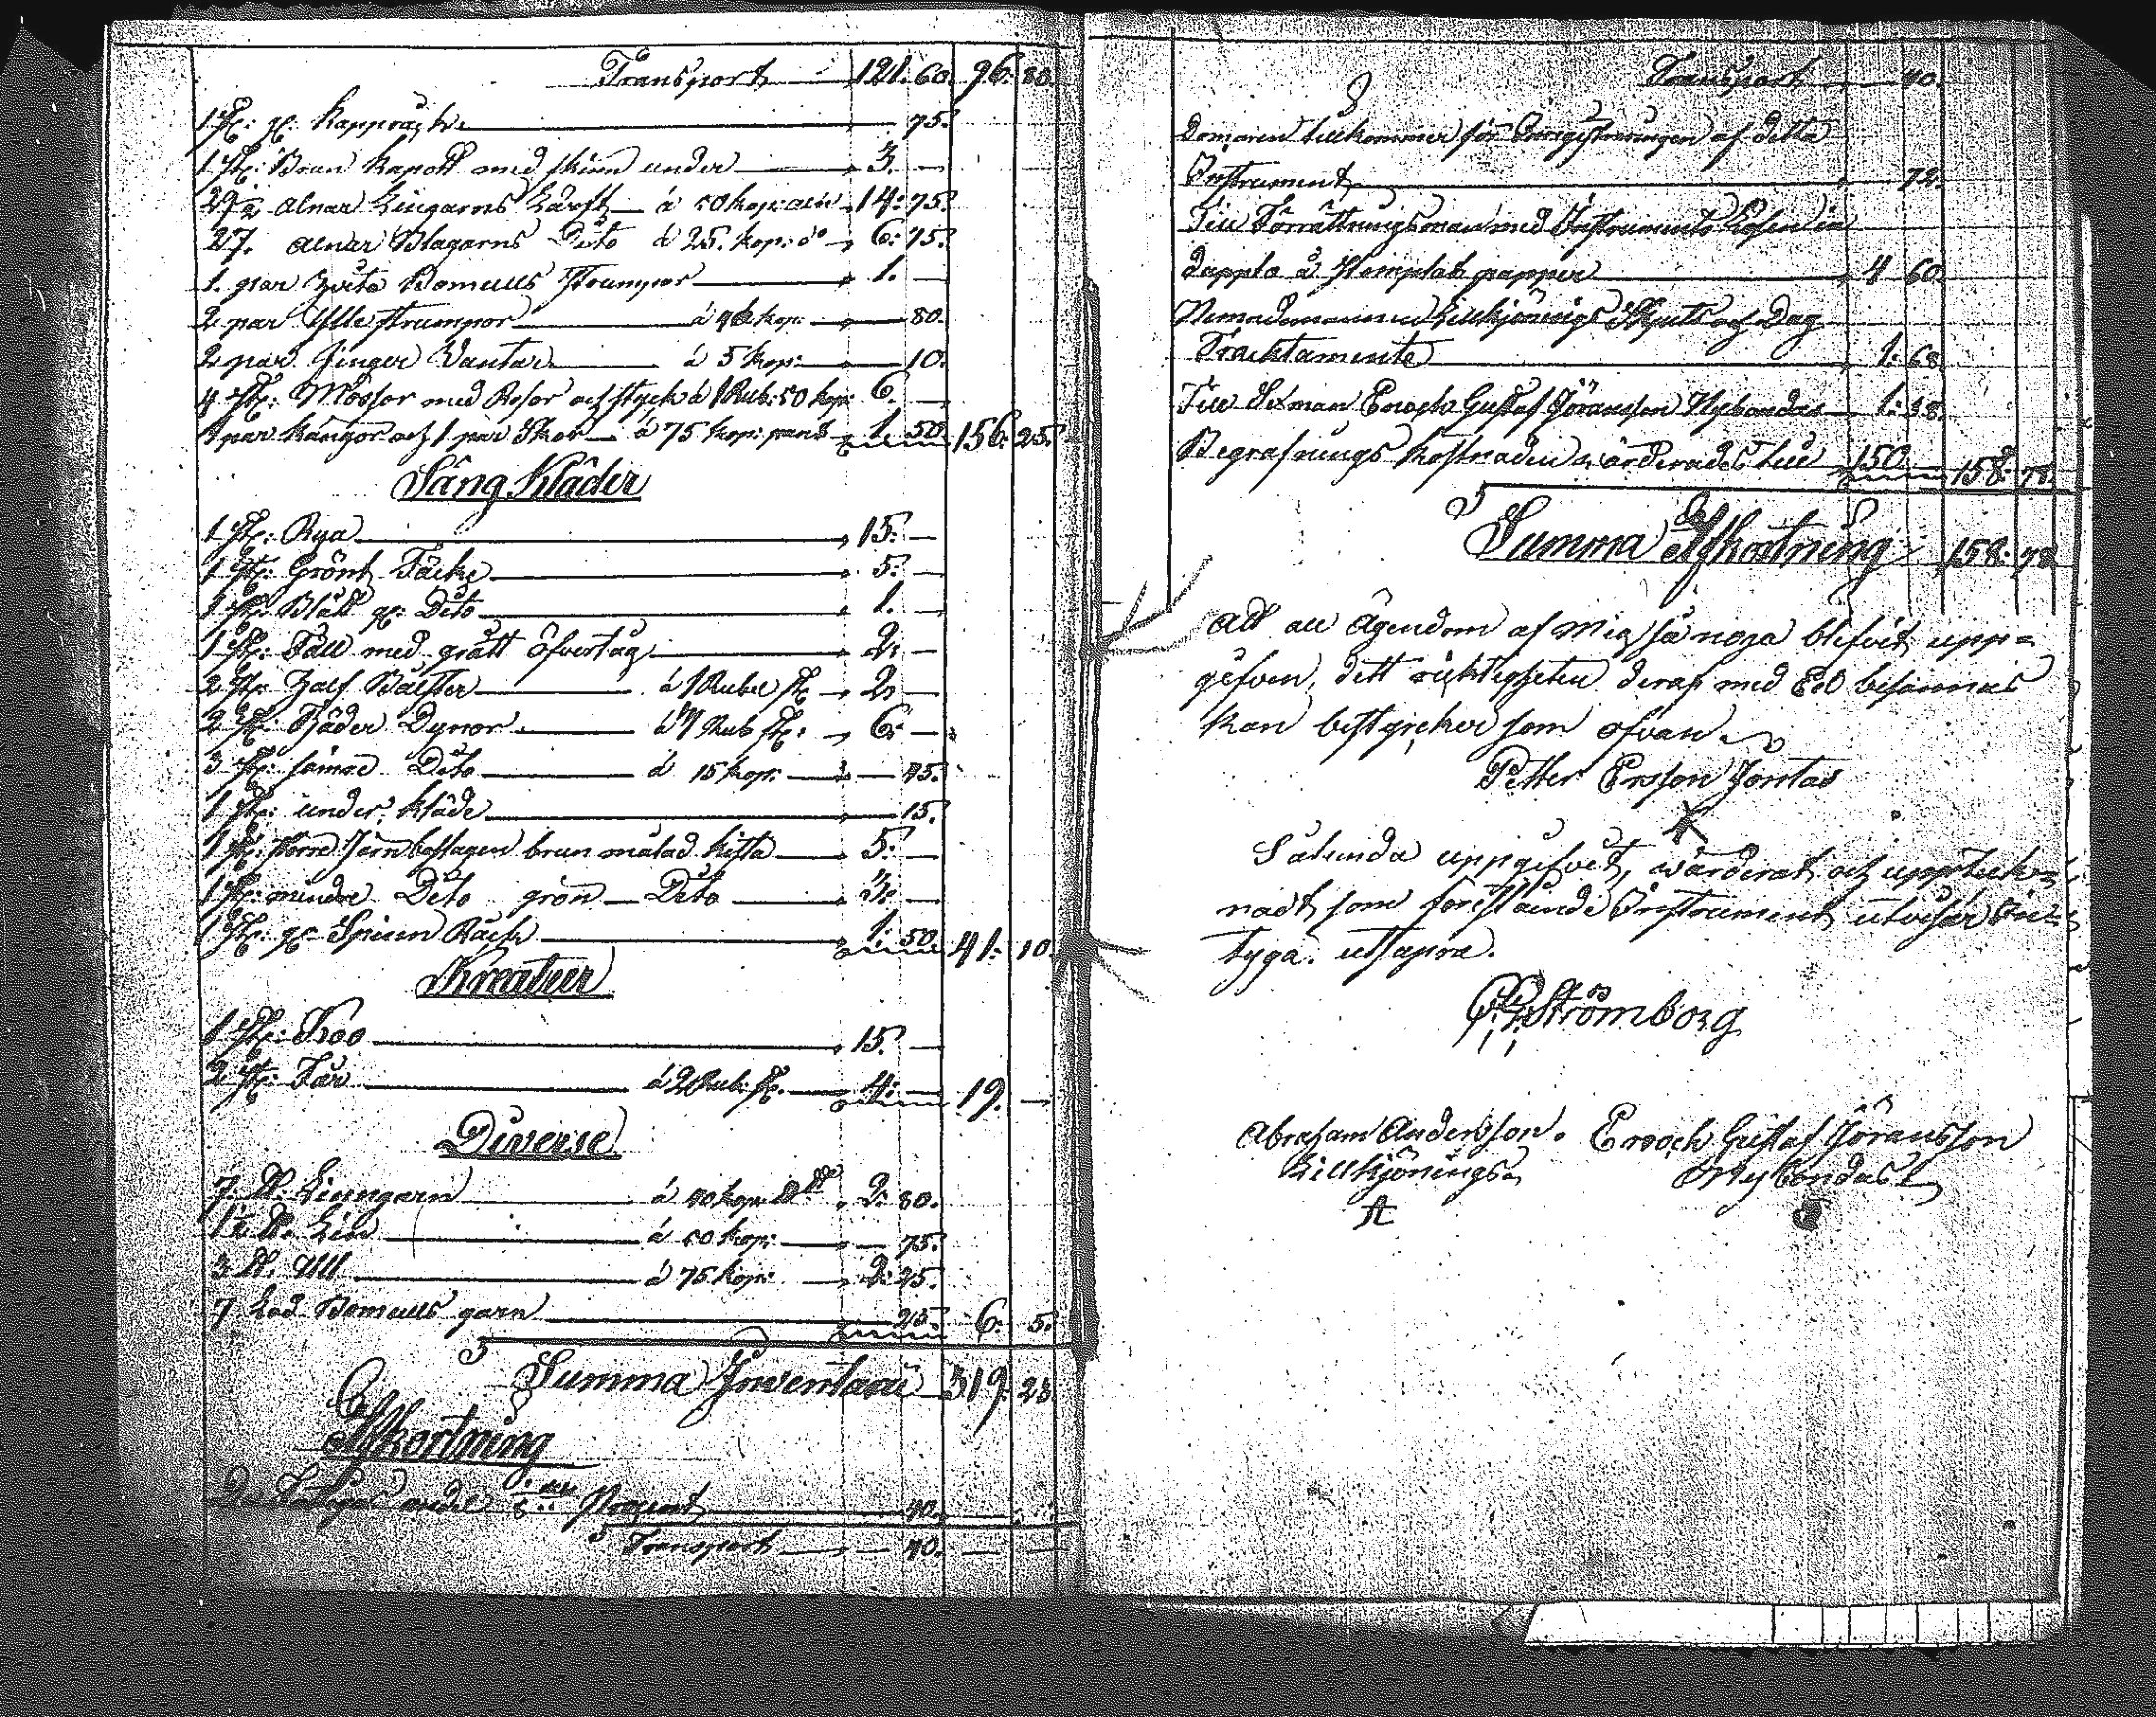 Transport 121. 60. 96. 80.
1 st: gl: Kappsäck 75.
1 st: Brun Kapott med skinn under 3. —
29½ alnar Lingarns Lärft á 50 kop: aln 14: 75.
27. alnar Blagarns Dito á 25. kop: do 6: 75.
1. par hvita Bomulls strumpor 1. —
2 par Ylle strumpor á 40 kop: 80.
2 par finger Vantar á 5 kop: 10.
4 st: Mössor med Rosor och styck á 1 Rub: 50 kop: 6. —
1 par Kängor och 1 par Skor á 75 kop: paret 1. 50 156. 25.
Säng Kläder
1 st: Rya 15. —
1 st: Grönt Täcke 5: —
1 st: Blått gl: Dito 1. —
1 st: Fäll med grått öfvertåg 2. —
2 st: half Bålster á 1 Rubel st 2. —
2 st: Fjäder Dynor á 3 Rub st: 6: —
3 st: sämre Dito á 15 kop: 45.
1 st: under kläde 15.
1 st: större Järnbeslagen brun målad kista 5: —
1 st: mindre Dito grön Dito 3. —
1 st: gl: Spinn Räck 1: 50. 41: 10.
Kreatur
1 st: Koo 15. —
2 st: Får á 2 Rub: st. 4: — 19. —
Diverse
7 ℔. Linngarn á 40 kop: ℔ 2: 80.
1½ ℔. Lin á 50 kop: 75.
3 ℔. Ull á 75 kop: 2: 25.
7 Lod Bomulls garn 25. 6. 5.
Summa Inventarie 319. 20.
Afkortning
De Fattigas andel Procent 40.
Transport 40.
Transport 40.
Domaren tillkommer för Inregistreringen af detta
Instrument 72.
Till Förrättningsman med Instruments Lösen in
dupplo å Stemplat papper 4 60.
Nemndemannen Lillkjönings Skjuts och Dag
Tracktamente 1: 68.
Till Sexman Enoch Gustaf Jöransson Nybondas 1: 38.
Begrafnings kostnaden värderades till 150 158. 78.
Summa Afkortning 158: 78
Att all Ägendom af Mig så noga blifvit upp=
gifven, dett ricktigheten deraf med Ed besannas
kan bestyrcker som ofvan.
Petter Ersson Jöntas
Sålunda uppgifvet, värderat och uppteck=
nadt som förestående Instrument utvisar In=
tyga. utsupra.
Strömborg
Abraham Andersson. Enoch Gustaf Jöransson
Lillkjönings Nybondas